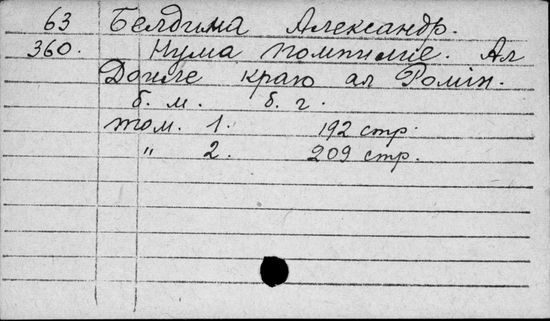 63 Белдима Александр.
360. Нума Помпилие. Ал
Доиле краю ал Ромін.
б. м. б. г.
том. 1. 192 стр.
" 2. 209 стр.